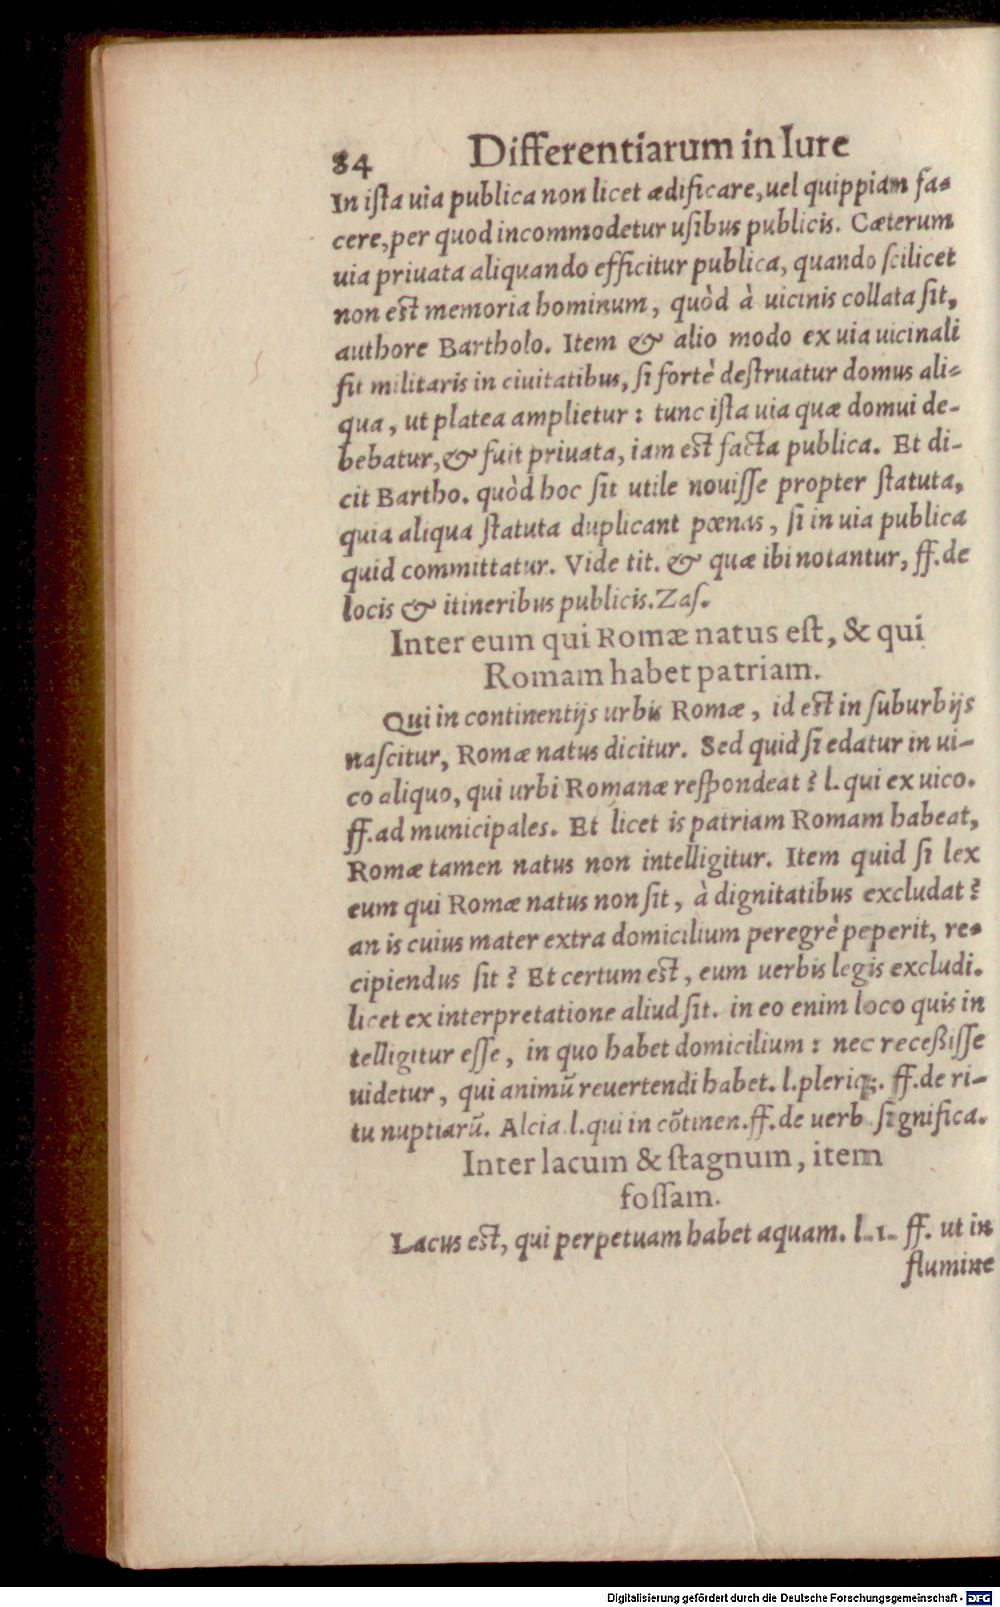 84 Differentiarum in Iure
In ista uia publica non licet ædificare, uel quippiam fa-
cere, per quod incommodetur usibus publicis. Cæterum
uia priuata aliquando efficitur publica, quando scilicet
non est memoria hominum, quòd à uicinis collata sit,
authore Bartholo. Item & alio modo ex uia uicinali
fit militaris in ciuitatibus, si fortè destruatur domus ali-
qua, ut platea amplietur: tunc ista uia quæ domui de-
bebatur, & fuit priuata, iam est facta publica. Et di-
cit Bartho. quòd hoc sit utile nouisse propter statuta,
quia aliqua statuta duplicant pœnas, si in uia publica
quid committatur. Vide tit. & quæ ibi notantur, ff. de
locis & itineribus publicis. Zas.
Inter eum qui Romæ natus est, & qui
Romam habet patriam.
Qui in continentijs urbis Romæ, id est in suburbijs
nascitur, Romæ natus dicitur. Sed quid si edatur in ui-
co aliquo, qui urbi Romanæ respondeat? l. qui ex uico.
ff. ad municipales. Et licet is patriam Romam habeat,
Romæ tamen natus non intelligitur. Item quid si lex
eum qui Romæ natus non sit, à dignitatibus excludat?
an is cuius mater extra domicilium peregrè peperit, re-
cipiendus sit? Et certum est, eum uerbis legis excludi.
licet ex interpretatione aliud sit. in eo enim loco quis in
telligitur esse, in quo habet domicilium: nec recessisse
uidetur, qui animũ reuertendi habet. l. pleriq;. ff. de ri-
tu nuptiarũ. Alcia. l. qui in cõtinen. ff. de uerb. significa.
Inter lacum & stagnum, item
fossam.
Lacus est, qui perpetuam habet aquam. l. 1. ff. ut in
flumine
Digitalisierung gefördert durch die Deutsche Forschungsgemeinschaft - DFG